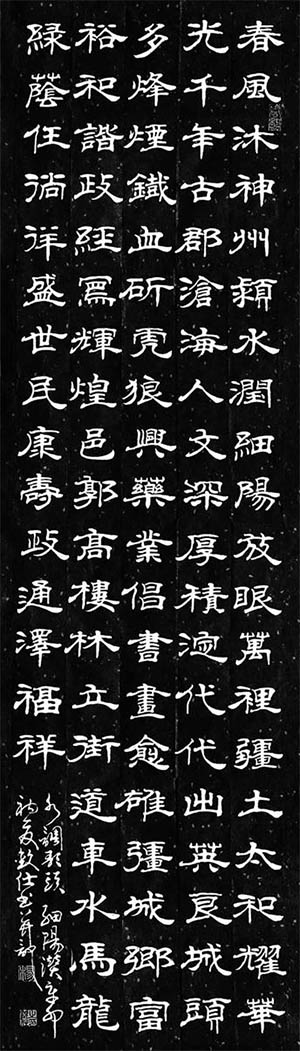 春風沐神州潁水潤細陽放眼萬裡疆土太和耀華
光千年古郡滄海人文深厚積淀代代出英良城頭
多烽煙鐵血斫虎狼興藥業倡書畫愈雄彊城鄉富
裕和諧政經冩輝煌邑郭高樓林立街道車水馬龍
綠蔭任徜徉盛世民康壽政通澤福祥
水調歌頭 細陽讚 辛卯
初夏敬仕書并記